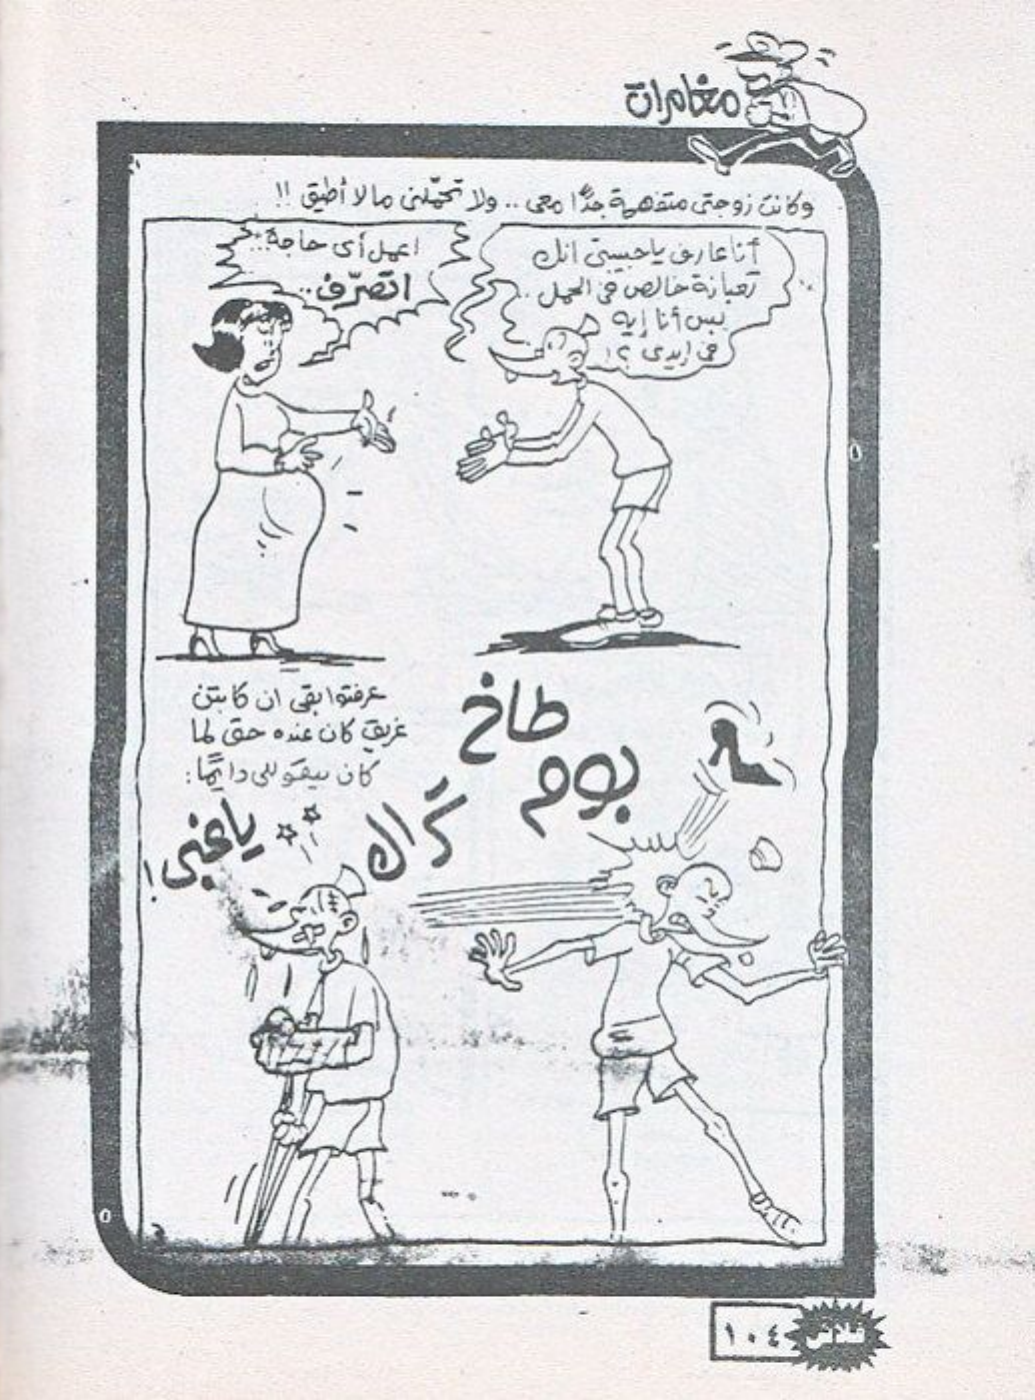 مغامرات
وكانت زوجتى متفهمة جدًّا معى .. ولا تحمّلنى مالا أطيق !!
أنا عارف ياحبيبتى انك
تعبانة خالص فى الحمل ..
بس أنا إيه
فى إيدى ؟!
اعمل أى حاجة ..
اتصرّف ..
طاخ
بوم
كَراك
عرفتوا بقى ان كابتن
غريق كان عنده حق لما
كان بيقوللى دايمًا :
ياغبى !
فلاش
١٠٤